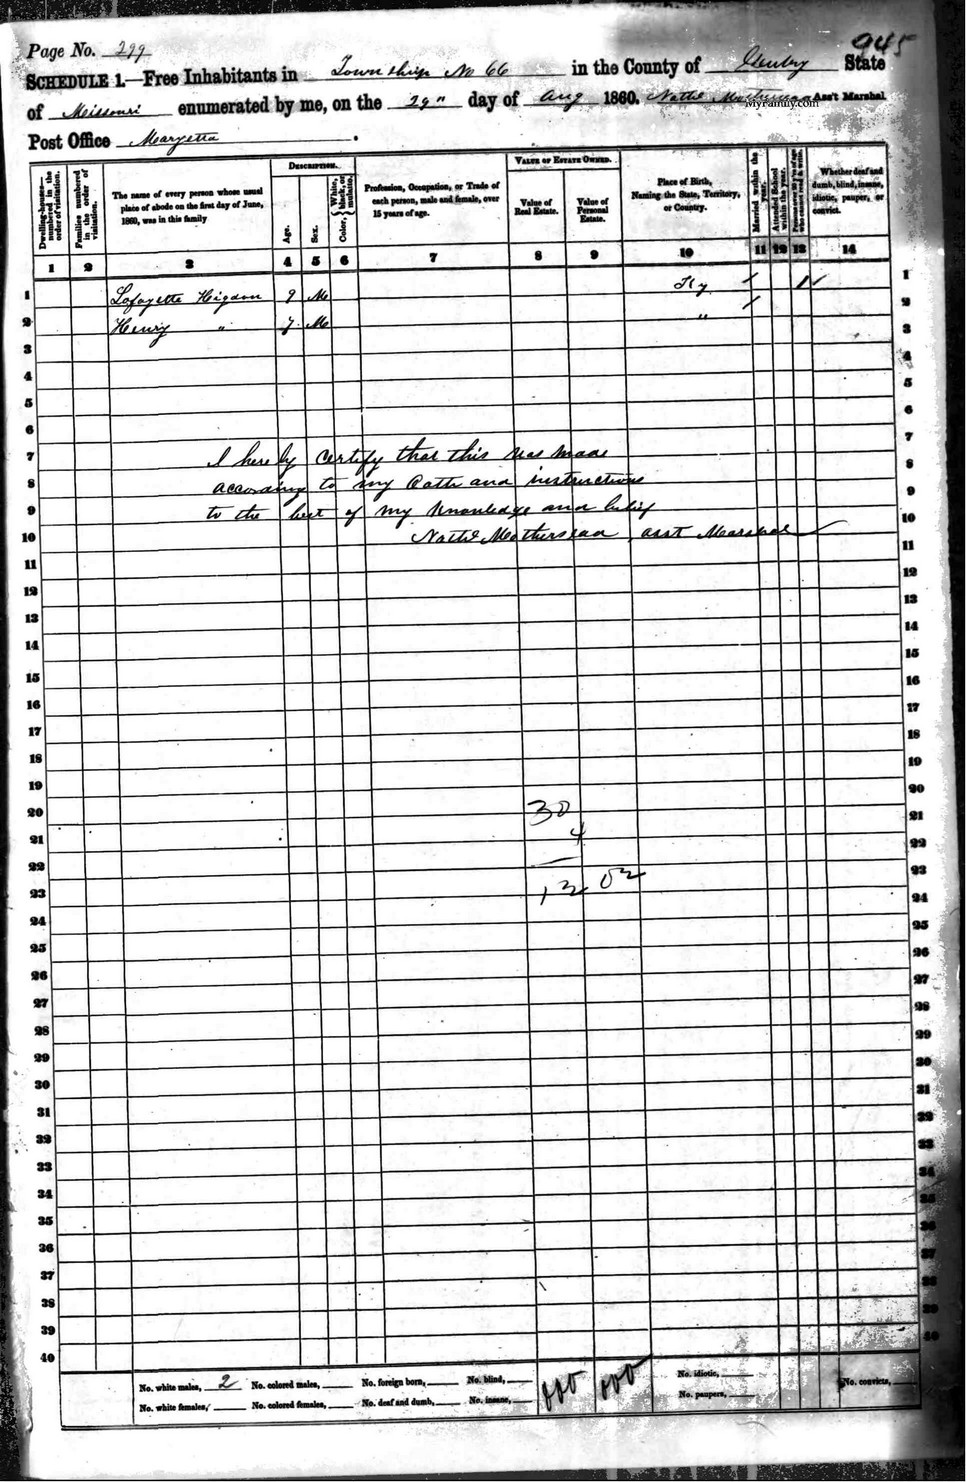 945
Page No. 299
SCHEDULE 1.—Free Inhabitants in Township No 66 in the County of State
of Missouri enumerated by me, on the 29" day of Aug 1860. Asst Marshal
MyFamily.com
Post Office Maryetta.
Dwelling-houses—numbered in the order of visitation.
Families numbered in the order of visitation.
The name of every person whose usual place of abode on the first day of June, 1860, was in this family
DESCRIPTION.
Age.
Sex.
Color, White, black, or mulatto.
Profession, Occupation, or Trade of each person, male and female, over 15 years of age.
VALUE OF ESTATE OWNED.
Value of Real Estate.
Value of Personal Estate.
Place of Birth, Naming the State, Territory, or Country.
Married within the year.
Attended School within the year.
Persons over 20 y'rs of age who cannot read & write.
Whether deaf and dumb, blind, insane, idiotic, pauper, or convict.
1 2 3 4 5 6 7 8 9 10 11 12 13 14
1 Lafayette Higdon 9 M Ky / 1/ 1
2 Henry " 7 M " / 2
3 3
4 4
5 5
6 6
7 I hereby certify that this was made 7
8 according to my Oath and instructions 8
9 to the best of my knowledge and belief 9
10 asst Marshal 10
11 11
12 12
13 13
14 14
15 15
16 16
17 17
18 18
19 19
20 30 20
21 4 21
22 22
23 02 23
24 24
25 25
26 26
27 27
28 28
29 29
30 30
31 31
32 32
33 33
34 34
35 35
36 36
37 37
38 38
39 39
40 40
No. white males, 2 No. colored males, No. foreign born, No. blind, 000 000 No. idiotic, No. convicts,
No. white females, No. colored females, No. deaf and dumb, No. insane, No. paupers,